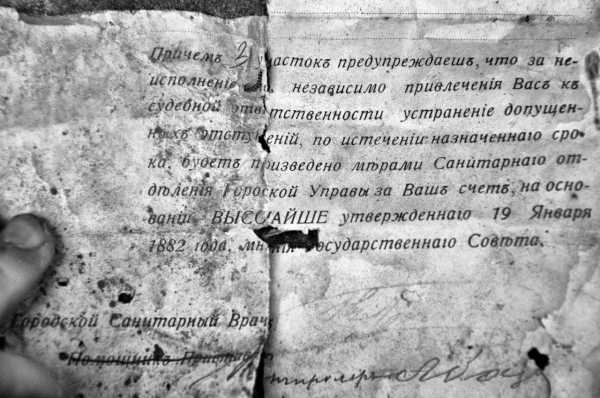 Причемъ 3 участокъ предупреждаешъ, что за не-
исполненіе независимо привлечения Васъ къ
судебной ответственности устраненіе допущен-
ныхъ отступеній, по истеченіи назначеннаго сро-
ка, будетъ произведено мѣрами Санитарнаго от-
дѣленія Городской Управы за Вашъ счетъ, на осно-
ваніи ВЫСОЧАЙШЕ утвержденнаго 19 Января
1882 года, мнѣнія Государственнаго Совѣта.
Городской Санитарный Врачъ
Помощникъ Пристава